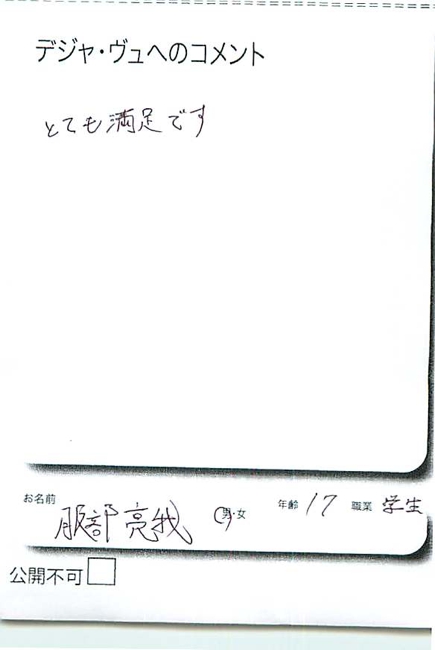 デジャ・ヴュへのコメント
とても満足です
お名前 服部亮我 男・女 年齢 17 職業 学生
公開不可